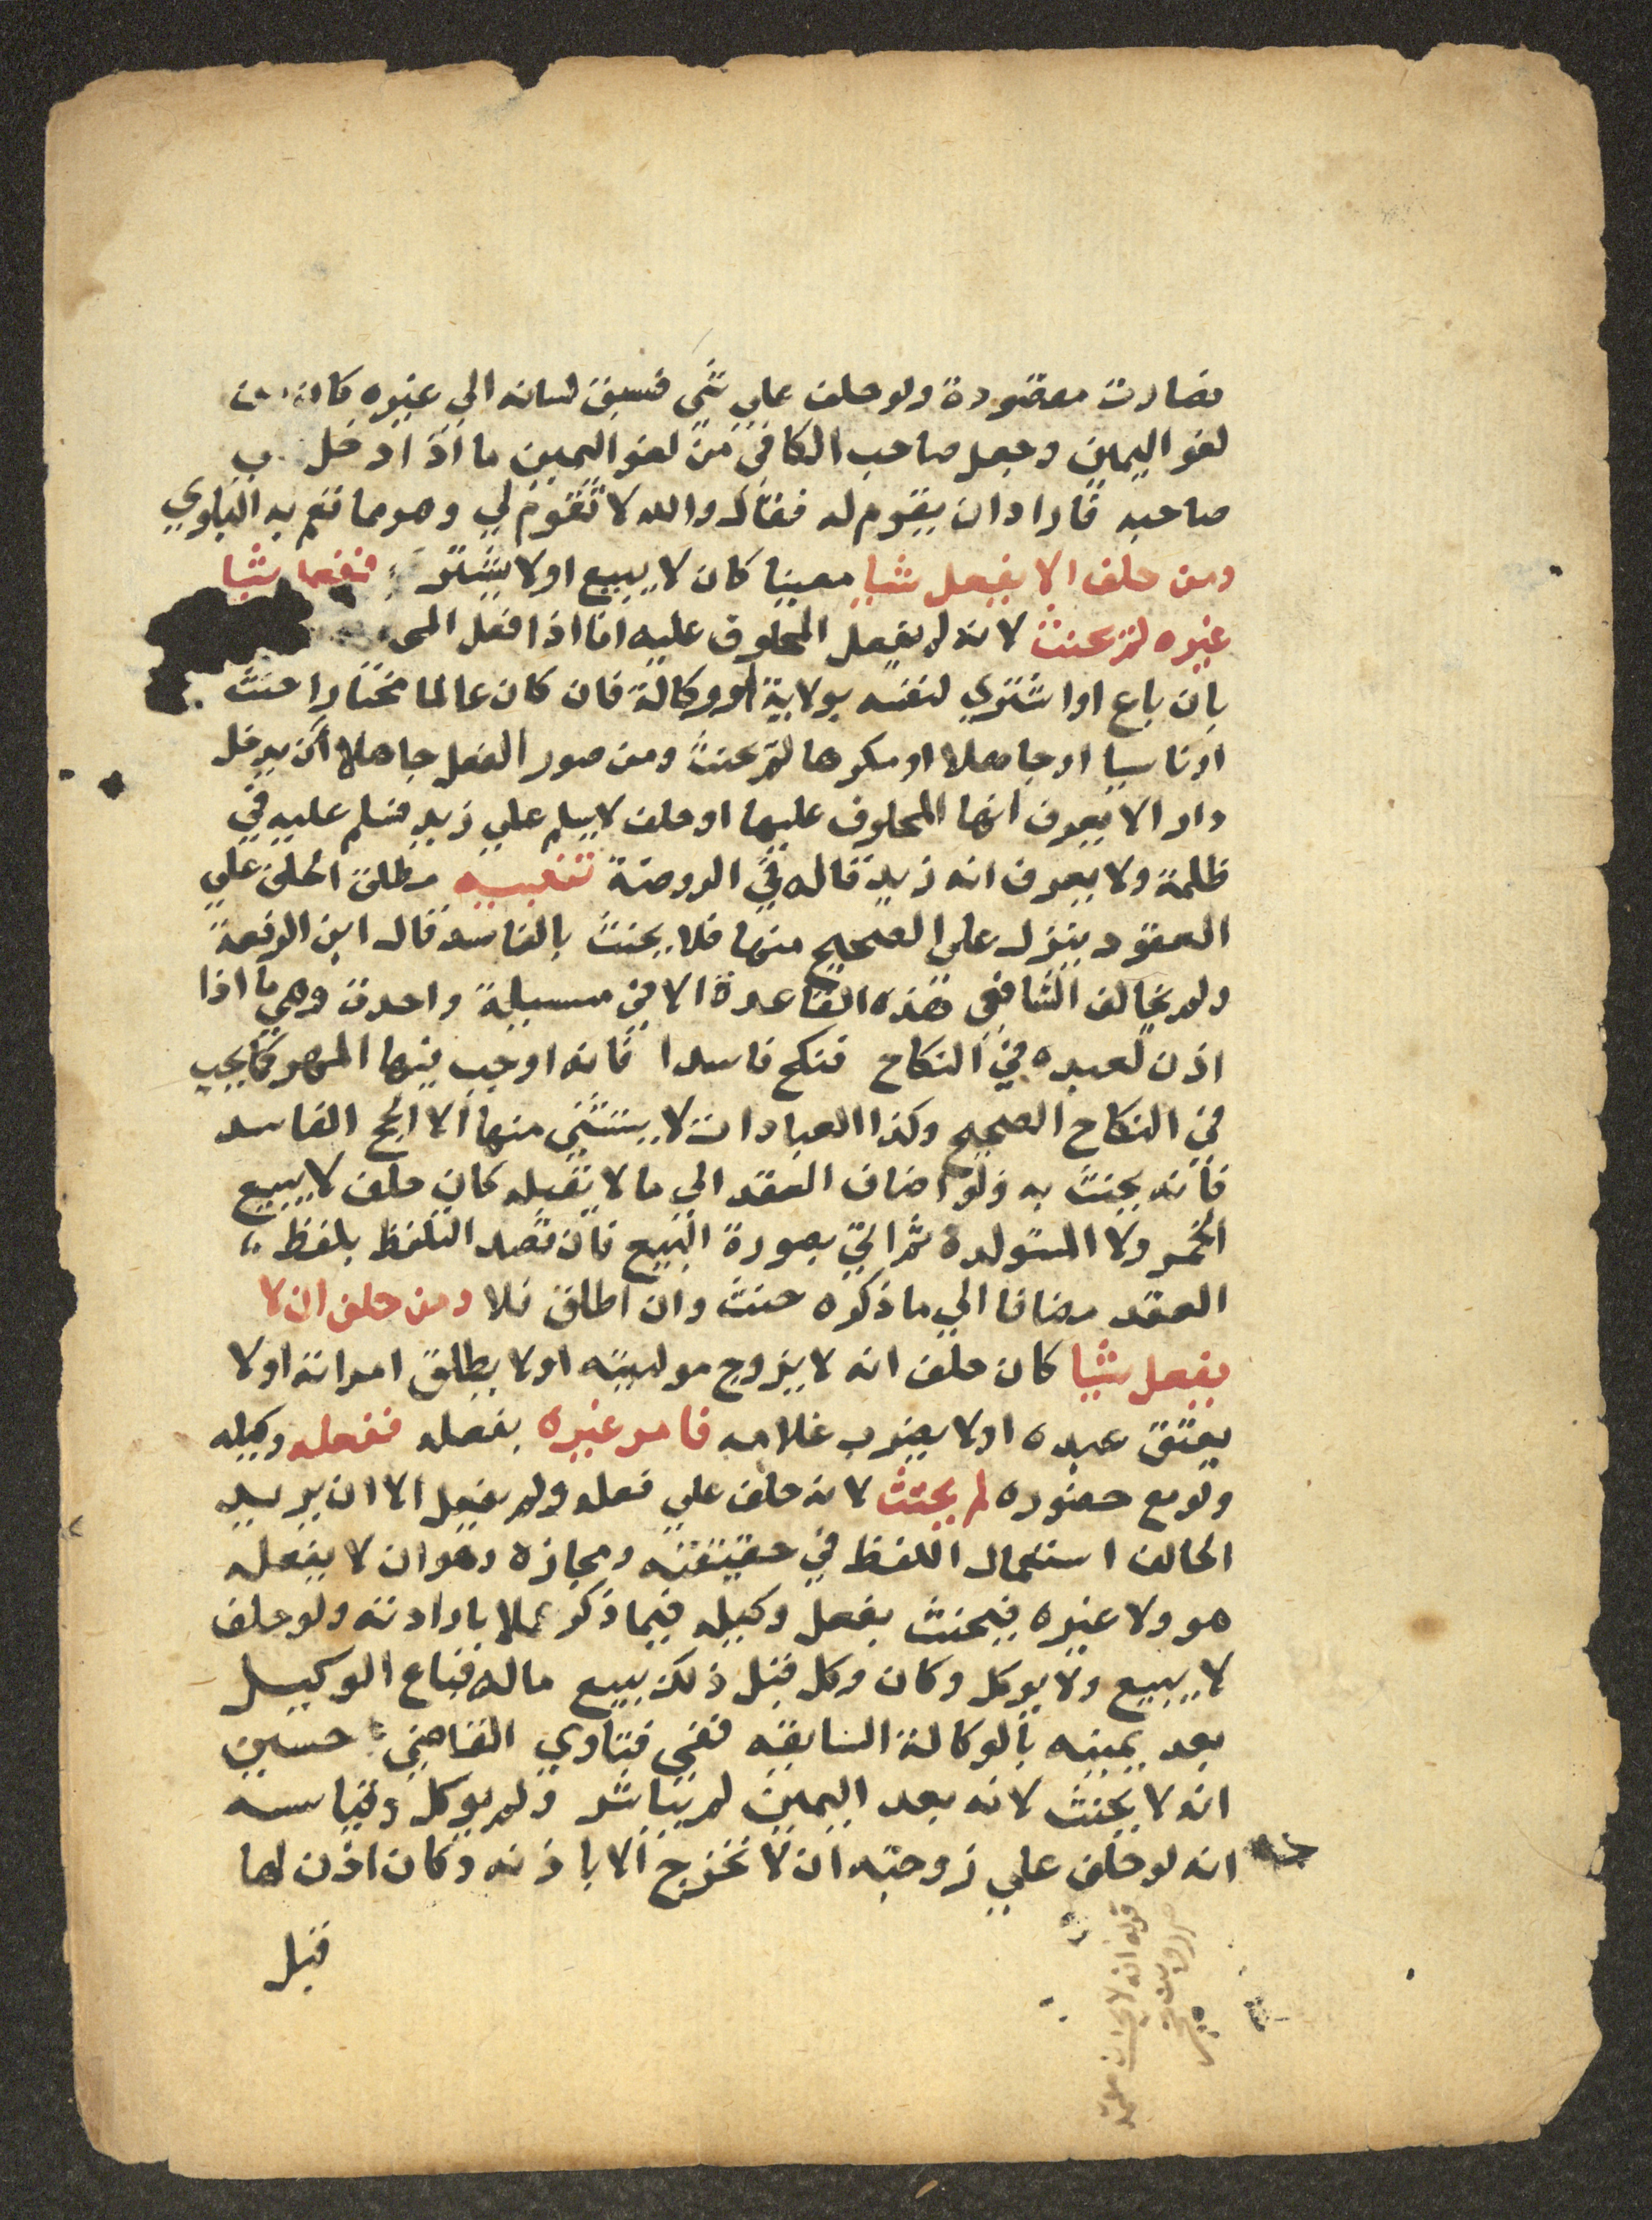 فصارت مقصودة ولو حلف علي شي فسبق لسانه الي غيره كان من
لغو اليمين وجعل صاحب الكافي من لغو اليمين ما اذا دخل
صاحبه فاراد ان يقوم له فقال والله لا تقوم لي وهو مما تعم به البلوي
ومن حلف الا يفعل شيا معينا كان لا يبيع او لا يشتري ففعل شيا
غيره لم يحنث لانه لم يفعل المحلوف عليه اما اذا فعل المح
بان باع او اشتري لنفسه بولاية او وكالة فان كان عالما مختارا حنث
او ناسيا او جاهلا او مكرها لم يحنث ومن صور الفعل جاهلا ان يدخل
دار الا يعرف انها المحلوف عليها او حلف لا يسلم علي زيد فسلم عليه في
ظلمة ولا يعرف انه زيد قاله في الروضة تنبيه مطلق الحلف علي
العقود ينزل علي الصحيح منها فلا يحنث بالفاسد قال ابن الرفعة
ولم يخالف الشافعي هذه القاعدة الا في مسيلة واحدة وهي ما اذا
اذن لعبده في النكاح فنكح فاسدا فانه اوجب فيها المهر كما يجب
في النكاح الصحيح وكذا العبادات لا يستثني منها الا الحج الفاسد
فانه يحنث به ولو اضاف العقد الي ما لا يقبله كان حلف لا يبيع
الخمر ولا المستولدة ثم اتي بصورة البيع فان قصد التلفظ بلفظ
العقد مضافا الي ما ذكره حنث وان اطلق فلا ومن حلف ان لا
يفعل شيا كان حلف انه لا يزوج موليته او لا يطلق امراته او لا
يعتق عبده او لا يضرب غلامه فامر غيره بفعله ففعله وكيله
ولو مع حضوره لم يحنث لانه حلف علي فعله ولم يفعل الا ان يريد
الحالف استعمال اللفظ في حقيقته ومجازه وهو ان لا يفعله
هو ولا غيره فيحنث بفعل وكيله فيما ذكر عملا بارادته ولو حلف
لا يبيع ولا يوكل وكان وكل قبل ذلك ببيع ماله فباع الوكيل
بعد يمينه بالوكالة السابقة ففي فتاوي القاضي حسين
انه لا يحنث لانه بعد اليمين لم يباشر ولم يوكل وقياسه
انه لو حلف علي زوجته ان لا تخرج الا باذنه وكان اذن لها
قبل
قوله انه لا يحنث